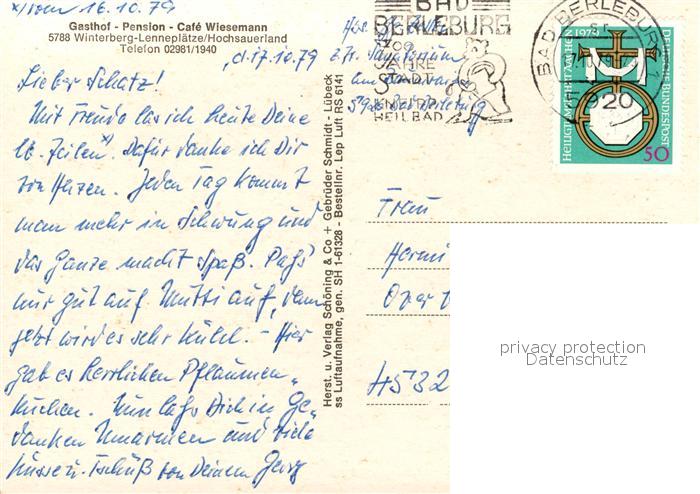 x) vom 16.10.79
Gasthof - Pension - Café Wiesemann
5788 Winterberg-Lenneplätze/Hochsauerland
Telefon 02981/1940
d. 17.10.79
Lieber Schatz!
Mit Freude las ich heute Deine
lb. Zeilen x). Dafür danke ich Dir
von Herzen. Jeden Tag kommt
man mehr in Schwung und
das Ganze macht Spaß. Paß
mir gut auf Mutti auf, denn
jetzt wird es sehr kühl. - Hier
gab es herrlichen Pflaumen-
kuchen. Nun laß Dich in Ge-
danken umarmen und viele
Küsse u. Tschüß von Deinem Georg
Herst. u. Verlag Schöning & Co + Gebrüder Schmidt - Lübeck
ss Luftaufnahme, gen. SH 1-61328 - Bestellnr. Lep Luft RS 6141
BAD
BERLEBURG
JAHRE
STADT
KNEIPP
HEILBAD
BAD BERLEBURG 1
5920
HEILIGTUMSFAHRT AACHEN 1979
DEUTSCHE BUNDESPOST
50
Frau
Hermi
Over
4532
privacy protection
Datenschutz